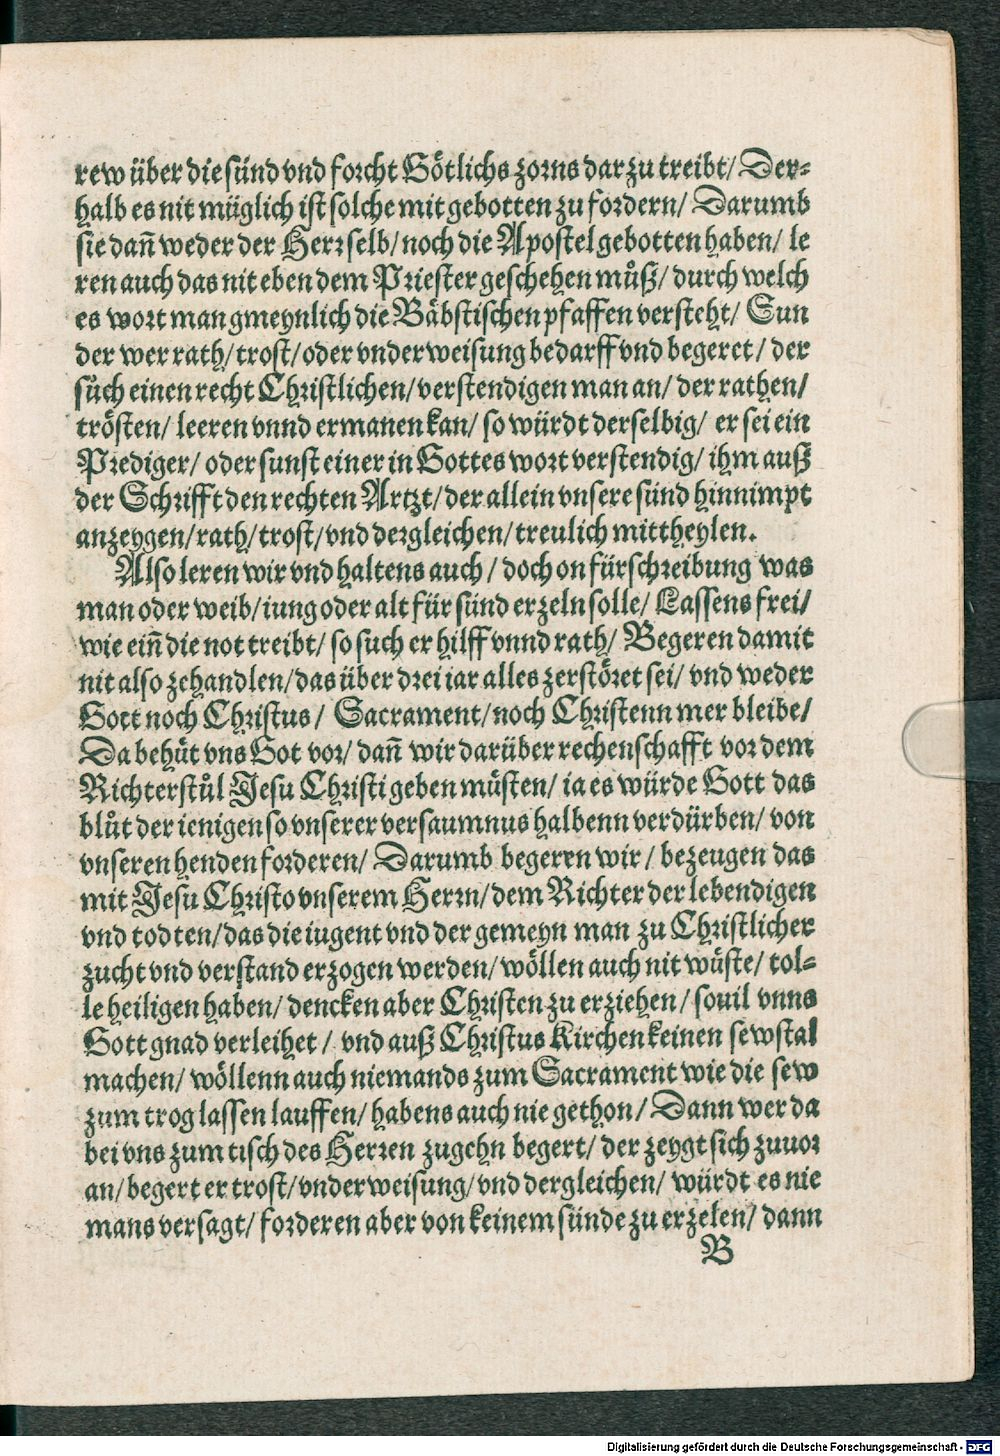 rew über die sünd vnd forcht Götlichs zorns dar zu treibt/ Der-
halb es nit müglich ist solche mit gebotten zu fordern/ Darumb
sie dañ weder der Herr selb/ noch die Apostel gebotten haben/ le
ren auch das nit eben dem Priester geschehen můß/ durch welch
es wort man gmeynlich die Bäbstischen pfaffen versteht/ Sun
der wer rath/ trost/ oder vnderweisung bedarff vnd begeret/ der
sůch einen recht Christlichen/ verstendigen man an/ der rathen/
trösten/ leeren vnnd ermanen kan/ so würdt derselbig/ er sei ein
Prediger/ oder sunst einer in Gottes wort verstendig/ ihm auß
der Schrifft den rechten Artzt/ der allein vnsere sünd hinnimpt
anzeygen/ rath/ trost/ vnd dergleichen/ treulich mittheylen.
Also leren wir vnd haltens auch/ doch on fürschreibung was
man oder weib/ iung oder alt für sünd erzeln solle/ Lassens frei/
wie eiñ die not treibt/ so such er hilff vnnd rath/ Begeren damit
nit also zehandlen/ das über drei iar alles zerstöret sei/ vnd weder
Gott noch Christus/ Sacrament/ noch Christenn mer bleibe/
Da behüt vns Got vor/ dañ wir darüber rechenschafft vor dem
Richterstůl Jesu Christi geben müsten/ ia es würde Gott das
blůt der ienigen so vnserer versaumnus halbenn verdürben/ von
vnseren henden forderen/ Darumb begeren wir/ bezeugen das
mit Jesu Christo vnserem Herrn/ dem Richter der lebendigen
vnd todten/ das die iugent vnd der gemeyn man zu Christlicher
zucht vnd verstand erzogen werden/ wöllen auch nit wüste/ tol-
le heiligen haben/ dencken aber Christen zu erziehen/ souil vnns
Gott gnad verleihet/ vnd auß Christus Kirchen keinen sewstal
machen/ wöllenn auch niemands zum Sacrament wie die sew
zum trog lassen lauffen/ habens auch nie gethon/ Dann wer da
bei vns zum tisch des Herren zugehn begert/ der zeygt sich zuuor
an/ begert er trost/ vnderweisung/ vnd dergleichen/ würdt es nie
mans versagt/ forderen aber von keinem sünde zu erzelen/ dann
B
Digitalisierung gefördert durch die Deutsche Forschungsgemeinschaft - DFG